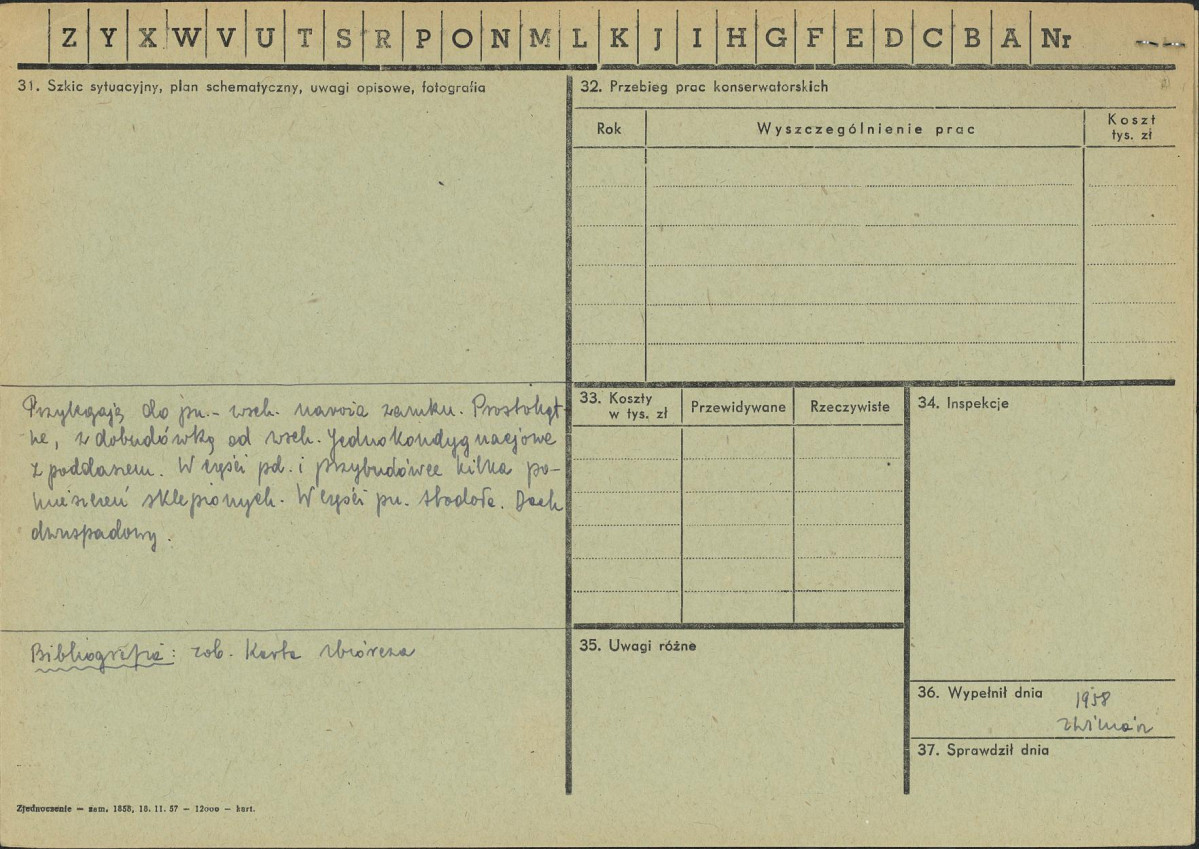 Z Y X W V U T S R P O N M L K J I H G F E D C B A Nr
31. Szkic sytuacyjny, plan schematyczny, uwagi opisowe, fotografia
Przylegają do pn.- wsch. naroża zamku. Prostokąt-
ne, z dobudówką od wsch. Jednokondygnacjowe
z poddaszem. W części pd. i przybudówce kilka po-
mieszczeń sklepionych. W części pn. stodoła. Dach
dwuspadowy.
Bibliografia: zob. Karta zbiorcza
Zjednoczenie — zam. 1858, 18. 11. 57 — 12000 — kart.
32. Przebieg prac konserwatorskich
Rok Wyszczególnienie prac Koszt
tys. zł
33. Koszty
w tys. zł Przewidywane Rzeczywiste
34. Inspekcje
35. Uwagi różne
36. Wypełnił dnia 1958
37. Sprawdził dnia